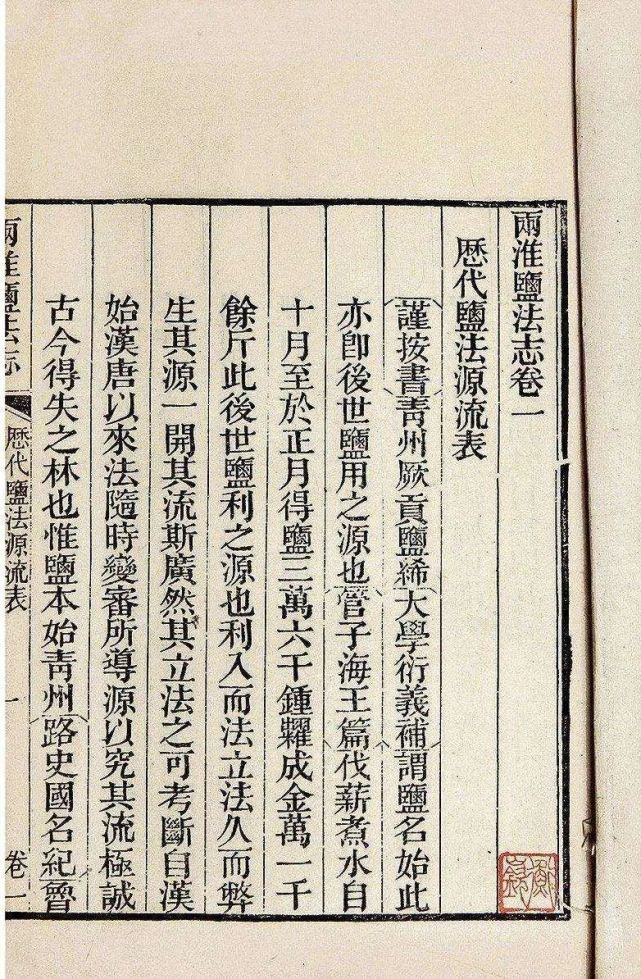 兩淮鹽法志卷一
歴代鹽法源流表
謹按書靑州厥貢鹽絺大學衍義補謂鹽名始此
亦卽後世鹽用之源也管子海王篇伐薪煮水自
十月至於正月得鹽三萬六千鍾糶成金萬一千
餘斤此後世鹽利之源也利入而法立法久而弊
生其源一開其流斯廣然其立法之可考斷自漢
始漢唐以來法隨時變審所導源以究其流極誠
古今得失之林也惟鹽本始靑州路史國名紀魯
兩淮鹽法志
歴代鹽法源流表
一
卷一